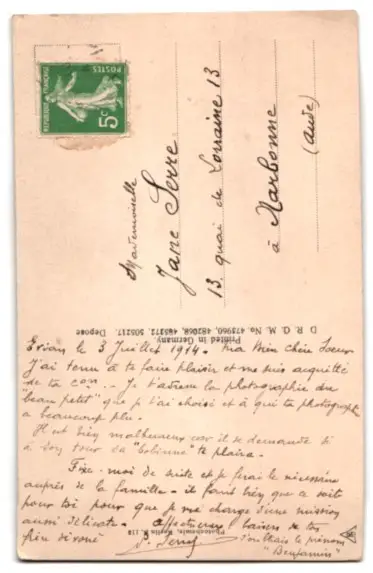 REPUBLIQUE FRANÇAISE
POSTES
5c
Mademoiselle
Jane Serre
13. quai de Lorraine 13
à Narbonne
(Aude)
D. R. G. M. No. 473960, 482068, 485272, 505217. Déposé
Printed in Germany.
Evian le 3 Juillet 1914. Ma bien chère Soeur
J'ai tenu à te faire plaisir et me suis acquitté
de ta con. - Je t'adresse la photographie du
"beau petit" que je t'ai choisi et à qui ta photographie
a beaucoup plu.
Il est bien malheureux car il se demande si
à son tour sa "bobinne" te plaira.
Fixe-moi de suite et je ferai le nécessaire
auprès de la famille - il faut bien que ce soit
pour toi pour que je me charge d'une mission
aussi délicate. Affectueux baisers de ton
frère dévoué
P. Serre
J'oubliais le prénom
"Benjamin"
Photochemie, Berlin